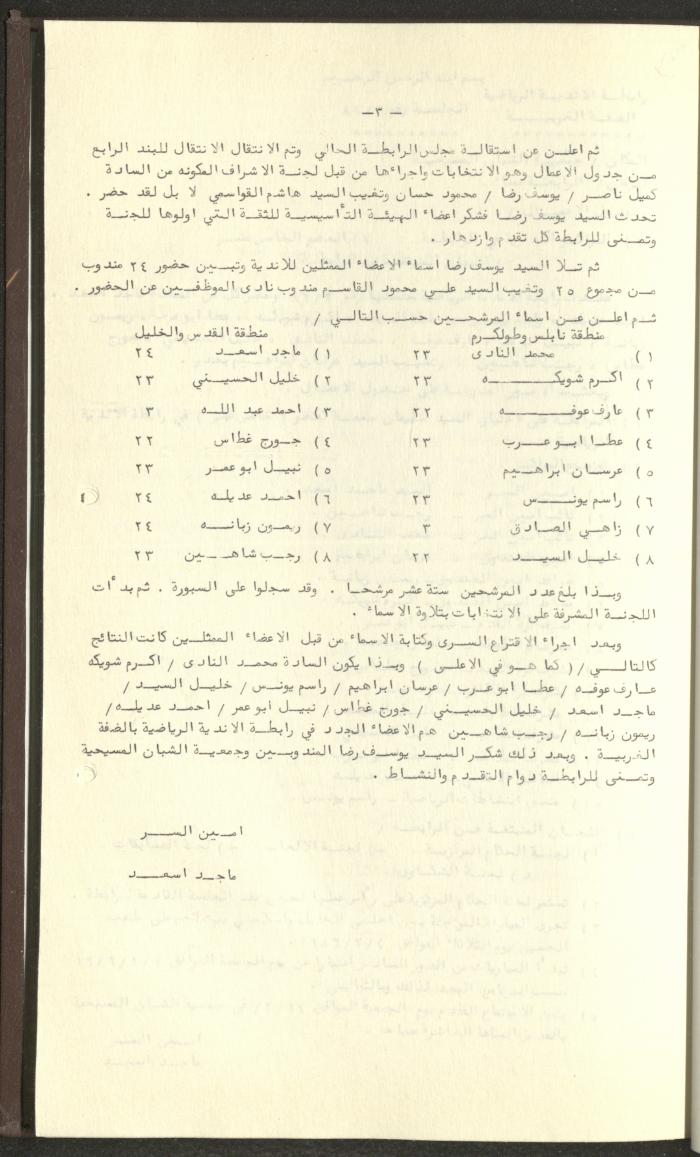 - ٣ -
ثم اعلن عن استقالة مجلس الرابطة الحالي وتم الانتقال الانتقال للبند الرابع
من جدول الاعمال وهو الانتخابات واجراءها من قبل لجنة الاشراف المكونه من السادة
كميل ناصر / يوسف رضا / محمود حسان وتغيب السيد هاشم القواسمي لا بل لقد حضر .
تحدث السيد يوسف رضا فشكر اعضاء الهيئة التأسيسية للثقة التي اولوها للجنة
وتمنى للرابطة كل تقدم وازدهار .
ثم تلا السيد يوسف رضا اسماء الاعضاء الممثلين للاندية وتبين حضور ٢٤ مندوب
من مجموع ٢٥ وتغيب السيد علي محمود القاسم مندوب نادى الموظفين عن الحضور .
ثم اعلن عن اسماء المرشحين حسب التالي /
منطقة نابلس وطولكرم منطقة القدس والخليل
١ ) محمد النادى ٢٣ ١ ) ماجد اسعد ٢٤
٢ ) اكرم شويكه ٢٣ ٢ ) خليل الحسيني ٢٣
٣ ) عارف عوفه ٢٢ ٣ ) احمد عبد الله ٣
٤ ) عطا ابو عرب ٢٣ ٤ ) جورج غطاس ٢٢
٥ ) عرسان ابراهيم ٢٣ ٥ ) نبيل ابو عمر ٢٣
٦ ) راسم يونس ٢٣ ٦ ) احمد عديله ٢٤
٧ ) زاهي الصادق ٣ ٧ ) ريمون زبانه ٢٤
٨ ) خليل السيد ٢٢ ٨ ) رجب شاهين ٢٣
وبذا بلغ عدد المرشحين ستة عشر مرشحا . وقد سجلوا على السبورة . ثم بدأت
اللجنة المشرفة على الانتخابات بتلاوة الاسماء .
وبعد اجراء الاقتراع السرى وكتابة الاسماء من قبل الاعضاء الممثلين كانت النتائج
كالتالي / ( كما هو في الاعلى ) وبذا يكون السادة محمد النادى / اكرم شويكه
عارف عوفه / عطا ابو عرب / عرسان ابراهيم / راسم يونس / خليل السيد /
ماجد اسعد / خليل الحسيني / جورج غطاس / نبيل ابو عمر / احمد عديله /
ريمون زبانه / رجب شاهين هم الاعضاء الجدد في رابطة الاندية الرياضية بالضفة
الغربية . وبعد ذلك شكر السيد يوسف رضا المندوبين وجمعية الشبان المسيحية
وتمنى للرابطة دوام التقدم والنشاط .
امين السر
ماجد اسعد